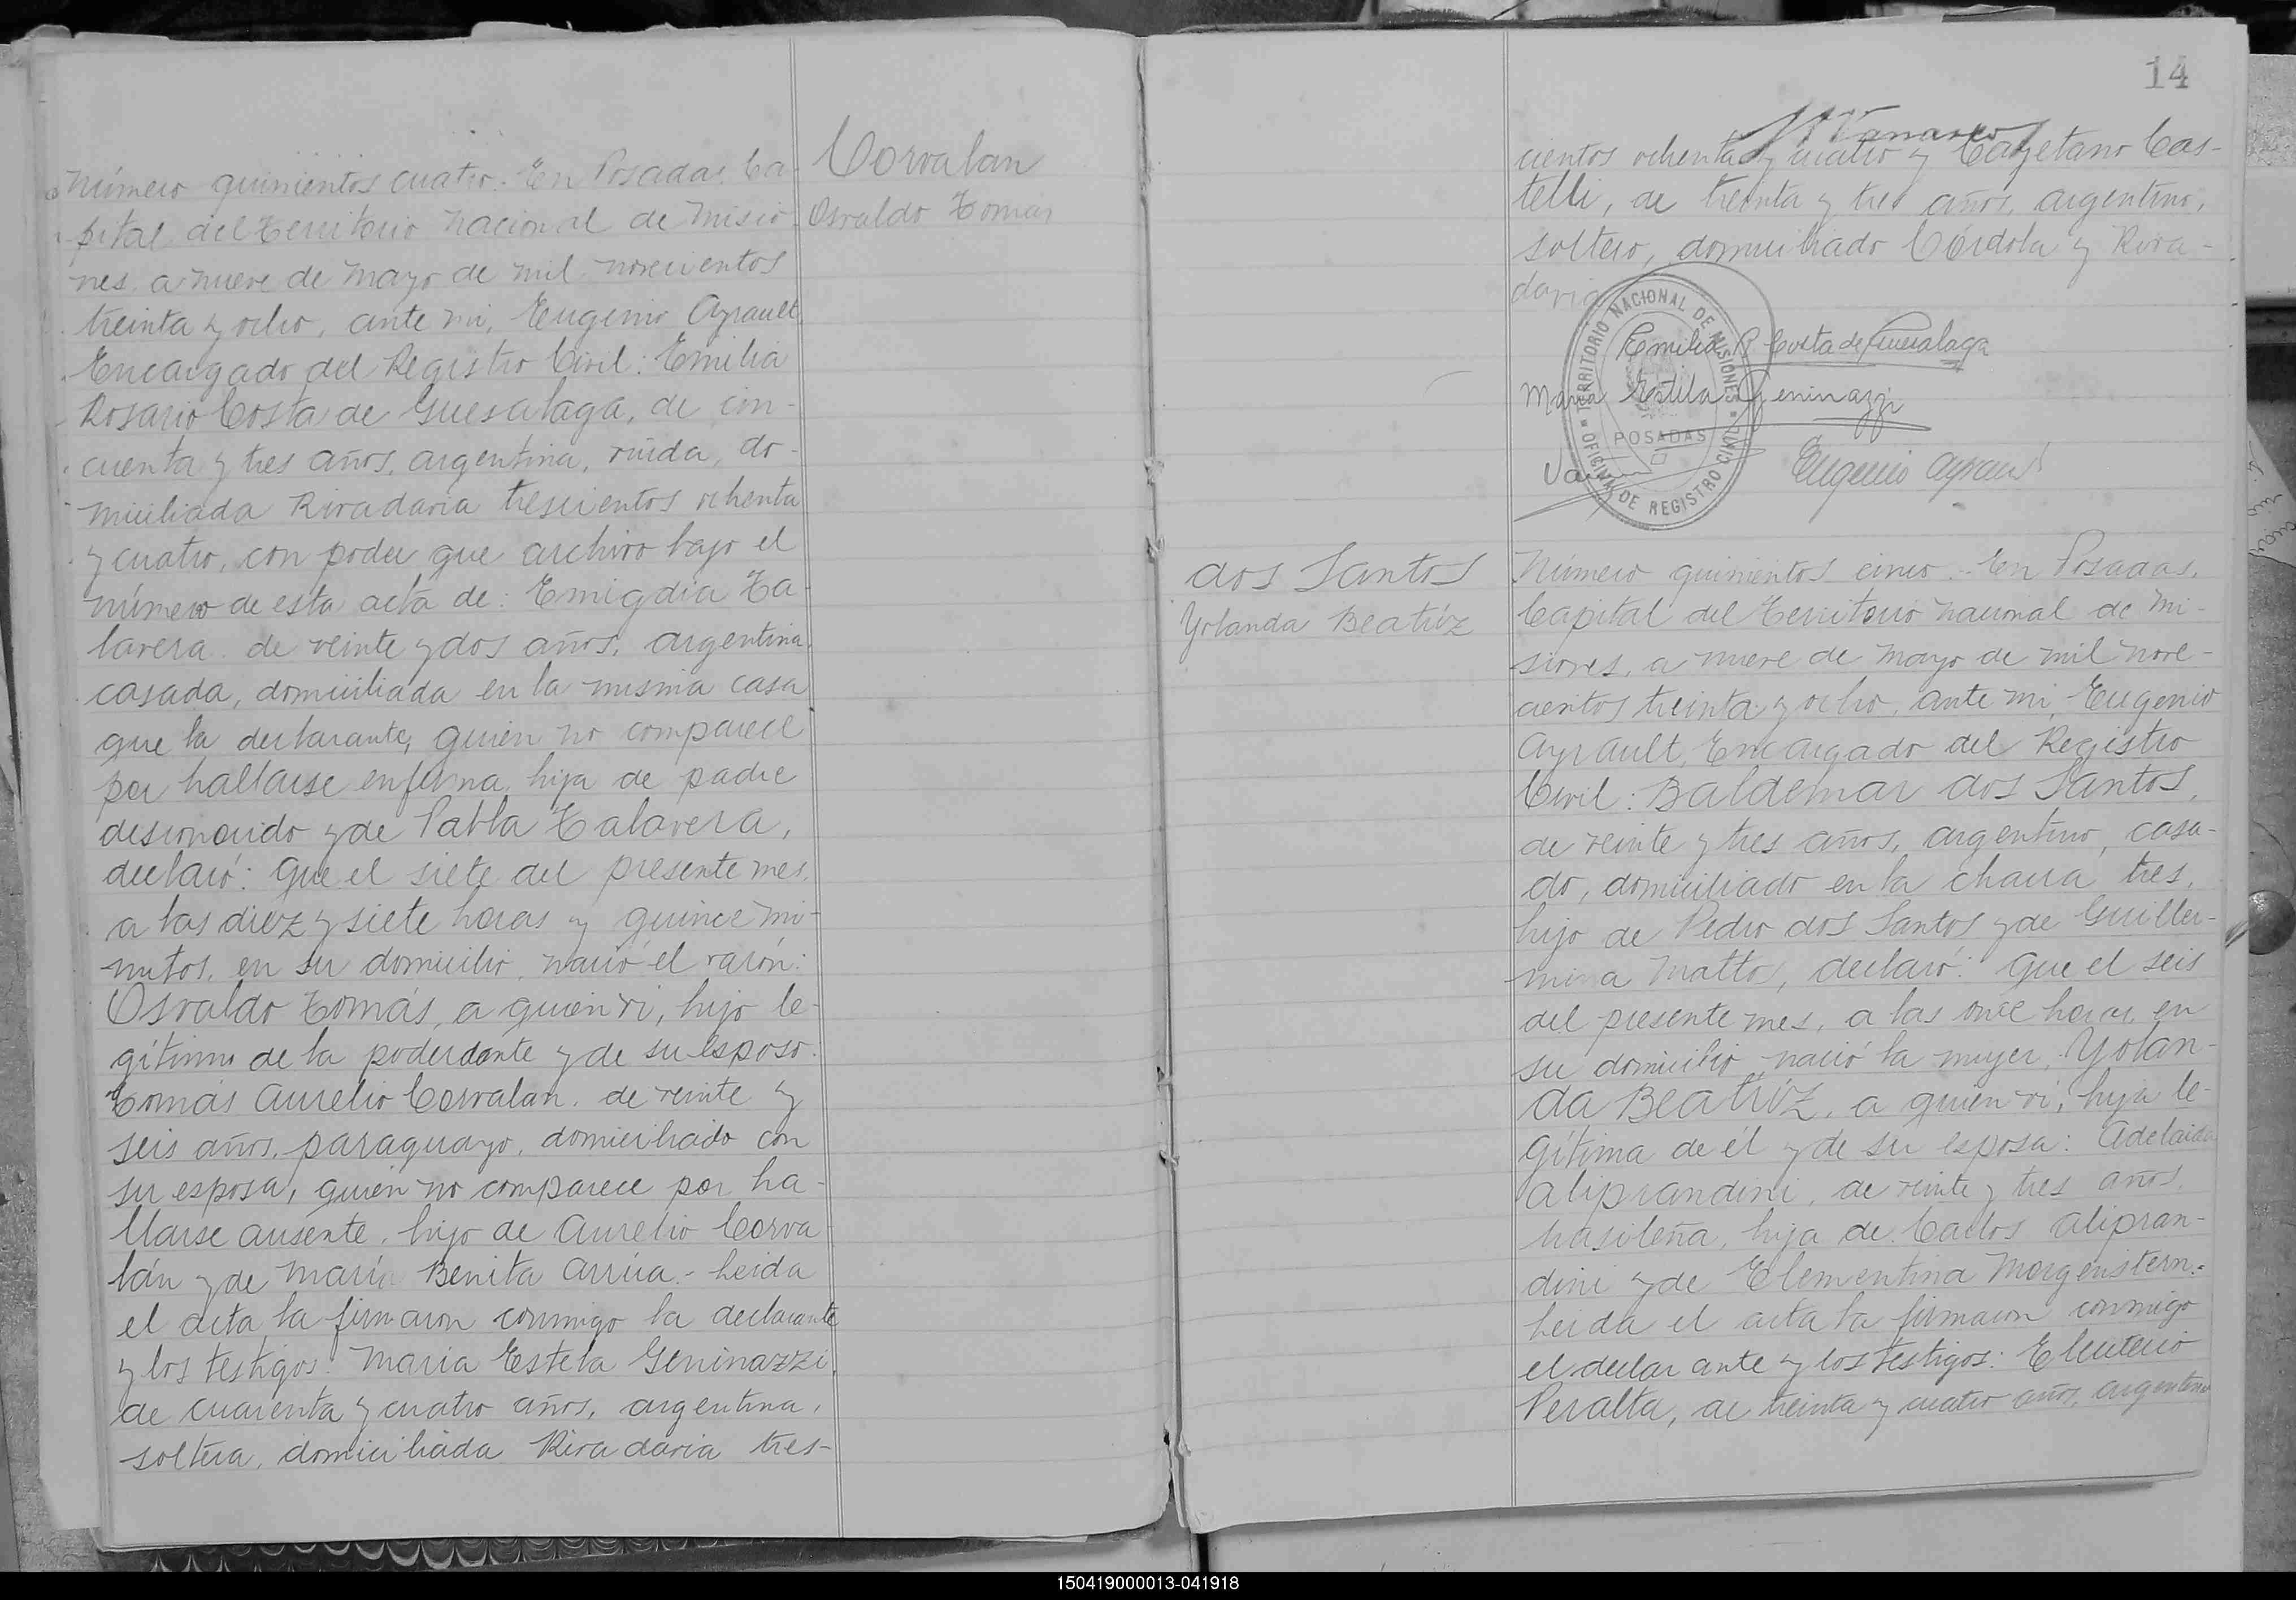 Corvalan
Osvaldo Tomás
Número quinientos cuatro.- En Posadas, Ca-
pital del Territorio Nacional de Misio-
nes, a nueve de Mayo de mil novecientos
treinta y ocho, ante mi, Eugenio Ayrault,
Encargado del Registro Civil: Emilia
Rosario Costa de Guesalaga, de cin-
cuenta y tres años, argentina, viuda, do-
miciliada Rivadavia trescientos ochenta
y cuatro, con poder que archivo bajo el
número de esta acta de: Emigdia Ta-
lavera, de veinte y dos años, argentina,
casada, domiciliada en la misma casa
que la declarante, quien no comparece
por hallarse enferma, hija de padre
desconocido y de Pabla Talavera,
declaró: Que el siete del presente mes,
a las diez y siete horas y quince mi-
nutos, en su domicilio, nació el varón:
Osvaldo Tomás, a quien vi, hijo le-
gítimo de la poderdante y de su esposo:
Tomás Aurelio Corvalan, de veinte y
seis años, paraguayo, domiciliado con
su esposa, quien no comparece por ha-
llarse ausente, hijo de Aurelio Corva-
lán y de María Benita Arrúa.- Leida
el acta, la firmaron conmigo la declarante
y los testigos: Maria Estela Geninazzi,
de cuarenta y cuatro años, argentina,
soltera, domiciliada Rivadavia tres-
14
cientos ochenta y cuatro y Cayetano Cas-
telli, de treinta y tres años, argentino,
soltero, domiciliado Córdoba y Riva-
davia
Emilia R Costa de Guesalaga
Maria Estela Geninazzi
Eugenio Ayrault
TERRITORIO NACIONAL DE MISIONES
OFICINA DE REGISTRO CIVIL
POSADAS
dos Santos
Yolanda Beatríz
Número quinientos cinco.- En Posadas,
Capital del Territorio Nacional de Mi-
siones, a nueve de Mayo de mil nove-
cientos treinta y ocho, ante mi, Eugenio
Ayrault, Encargado del Registro
Civil: Baldemar dos Santos,
de veinte y tres años, argentino, casa-
do, domiciliado en la chacra tres,
hijo de Pedro dos Santos y de Guiller-
mina Mattos, declaró: Que el seis
del presente mes, a las once horas, en
su domicilio nació la mujer: Yolan-
da Beatríz, a quien vi, hija le-
gítima de él y de su esposa: Adelaida
Aliprandini, de veinte y tres años,
brasileña, hija de Carlos Alipran-
dini y de Elementina Morgenstern.-
Leida el acta la firmaron conmigo
el declarante y los testigos: Eleuterio
Peralta, de treinta y cuatro años, argentino
150419000013-041918